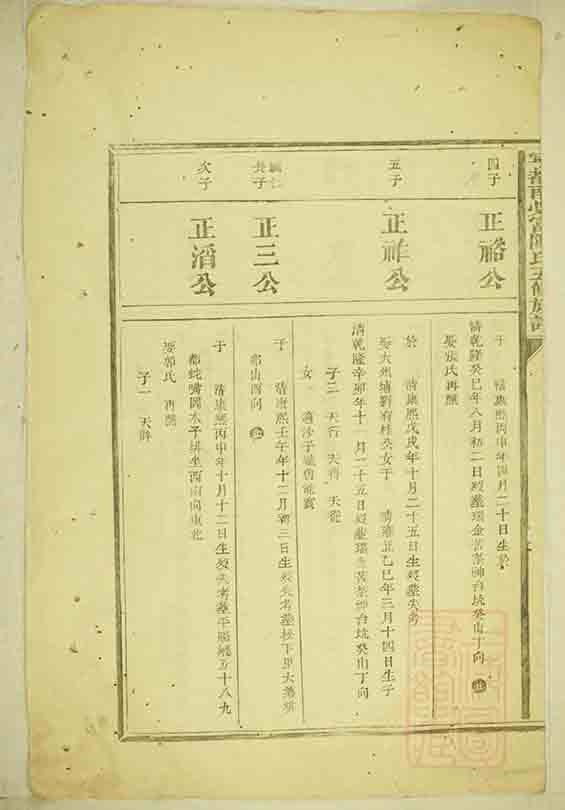 四子
正裕公
于 清康熙丙申年四月二十日生於
清乾隆癸巳年八月初二日歿葬瑞金苦茶神台坑癸山丁向
娶張氏再醮
五子
正祥公
於 清康熙戊戌年十月二十五日生歿葬失考
娶大州塘劉有桂公女于 清雍正乙巳年三月十四日生于
清乾隆辛卯年十一月二十五日歿葬瑞金苦茶神台坑癸山丁向
子三 天行 天 天從
女一 適沙子
長子
正三公
于 清康熙壬午年十二月初三日生歿失考葬松下里大
山酉向
次子
正滔公
于 清康熙丙申年十月十二日生歿失考葬平陽鄉五十八九
都蛇嘴圓水子排坐西南向東北
娶郭氏 再醮
子一 天